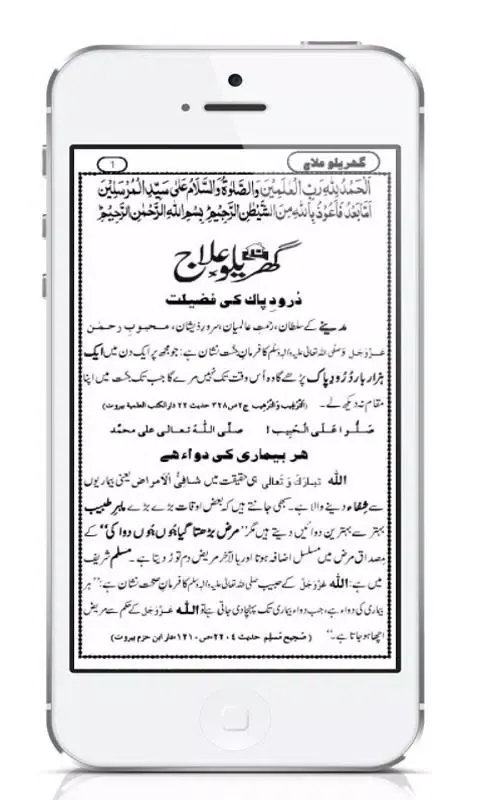 گھریلو علاج
1
اَلْحَمْدُ لِلّٰهِ رَبِّ الْعٰلَمِيْنَ وَالصَّلٰوةُ وَالسَّلَامُ عَلٰى سَيِّدِ الْمُرْسَلِيْنَ
اَمَّا بَعْدُ فَاَعُوْذُ بِاللّٰهِ مِنَ الشَّيْطٰنِ الرَّجِيْمِ ؕ بِسْمِ اللّٰهِ الرَّحْمٰنِ الرَّحِيْمِ ؕ
گھریلو علاج
دُرُودِ پاک کی فضیلت
مدینے کے سلطان، رحمتِ عالمیان، سرورِ ذیشان، محبوبِ رحمٰن
عَزَّوَجَلَّ و صلی اللہ تعالیٰ علیہ واٰلہٖ وسلم کا فرمانِ جنّت نشان ہے: جو مجھ پر ایک دن میں ایک
ہزار بار دُرُودِ پاک پڑھے گا وہ اُس وقت تک نہیں مرے گا جب تک جنّت میں اپنا
مقام نہ دیکھ لے۔ (اَلتَّرغِیب وَالتَّرهِیب ج۲ ص۳۲۸ حدیث ۲۲ دارالکتب العلمیۃ بیروت)
صَلُّوا عَلَى الْحَبِيب! صلَّی اللّٰهُ تعالٰی علٰی محمَّد
ہر بیماری کی دواء ہے
اللّٰہ تَبارَکَ وَ تَعالٰی ہی حقیقت میں شافِیُ الْاَمراض یعنی بیماریوں
سے شِفاء دینے والا ہے۔ سبھی جانتے ہیں کہ بعض اوقات بڑے بڑے ماہِر طبیب
بہتر سے بہترین دوائیں دیتے ہیں مگر ”مرض بڑھتا گیا جُوں جُوں دوا کی“ کے
مِصداق مرض میں مسلسل اضافہ ہوتا اور بالآخر مریض دم توڑ دیتا ہے۔ مسلم شریف
میں ہے: اللّٰہ عَزَّوَجَلَّ کے حبیب صلی اللہ تعالیٰ علیہ واٰلہٖ وسلم کا فرمانِ صحّت نشان ہے: ”ہر
بیماری کی دواء ہے، جب دواء بیماری تک پہنچا دی جاتی ہے تو اللّٰہ عَزَّوَجَلَّ کے حکم سے مریض
اچھا ہو جاتا ہے۔“ (صَحِیح مُسلِم حدیث ۲۲۰۴ ص۱۲۱۰ دار ابن حزم بیروت)